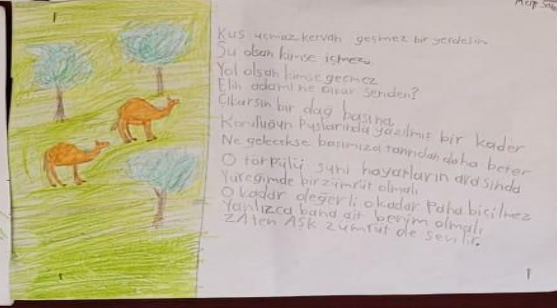 Kuş uçmaz kervan geçmez bir yerdesin
Su olsan kimse içmez
Yol olsan kimse geçmez
Elin adamı ne anlar senden?
Çıkarsın bir dağ başına
yazılmış bir kader
Ne gelecekse başımıza tanrıdan daha beter
O törpülü suni hayatların arasında
Yüreğimde bir zümrüt olmalı
O kadar değerli o kadar Paha biçilmez
Yanlızca bana ait benim olmalı
ZAten AŞk zümrüt de sevilir.